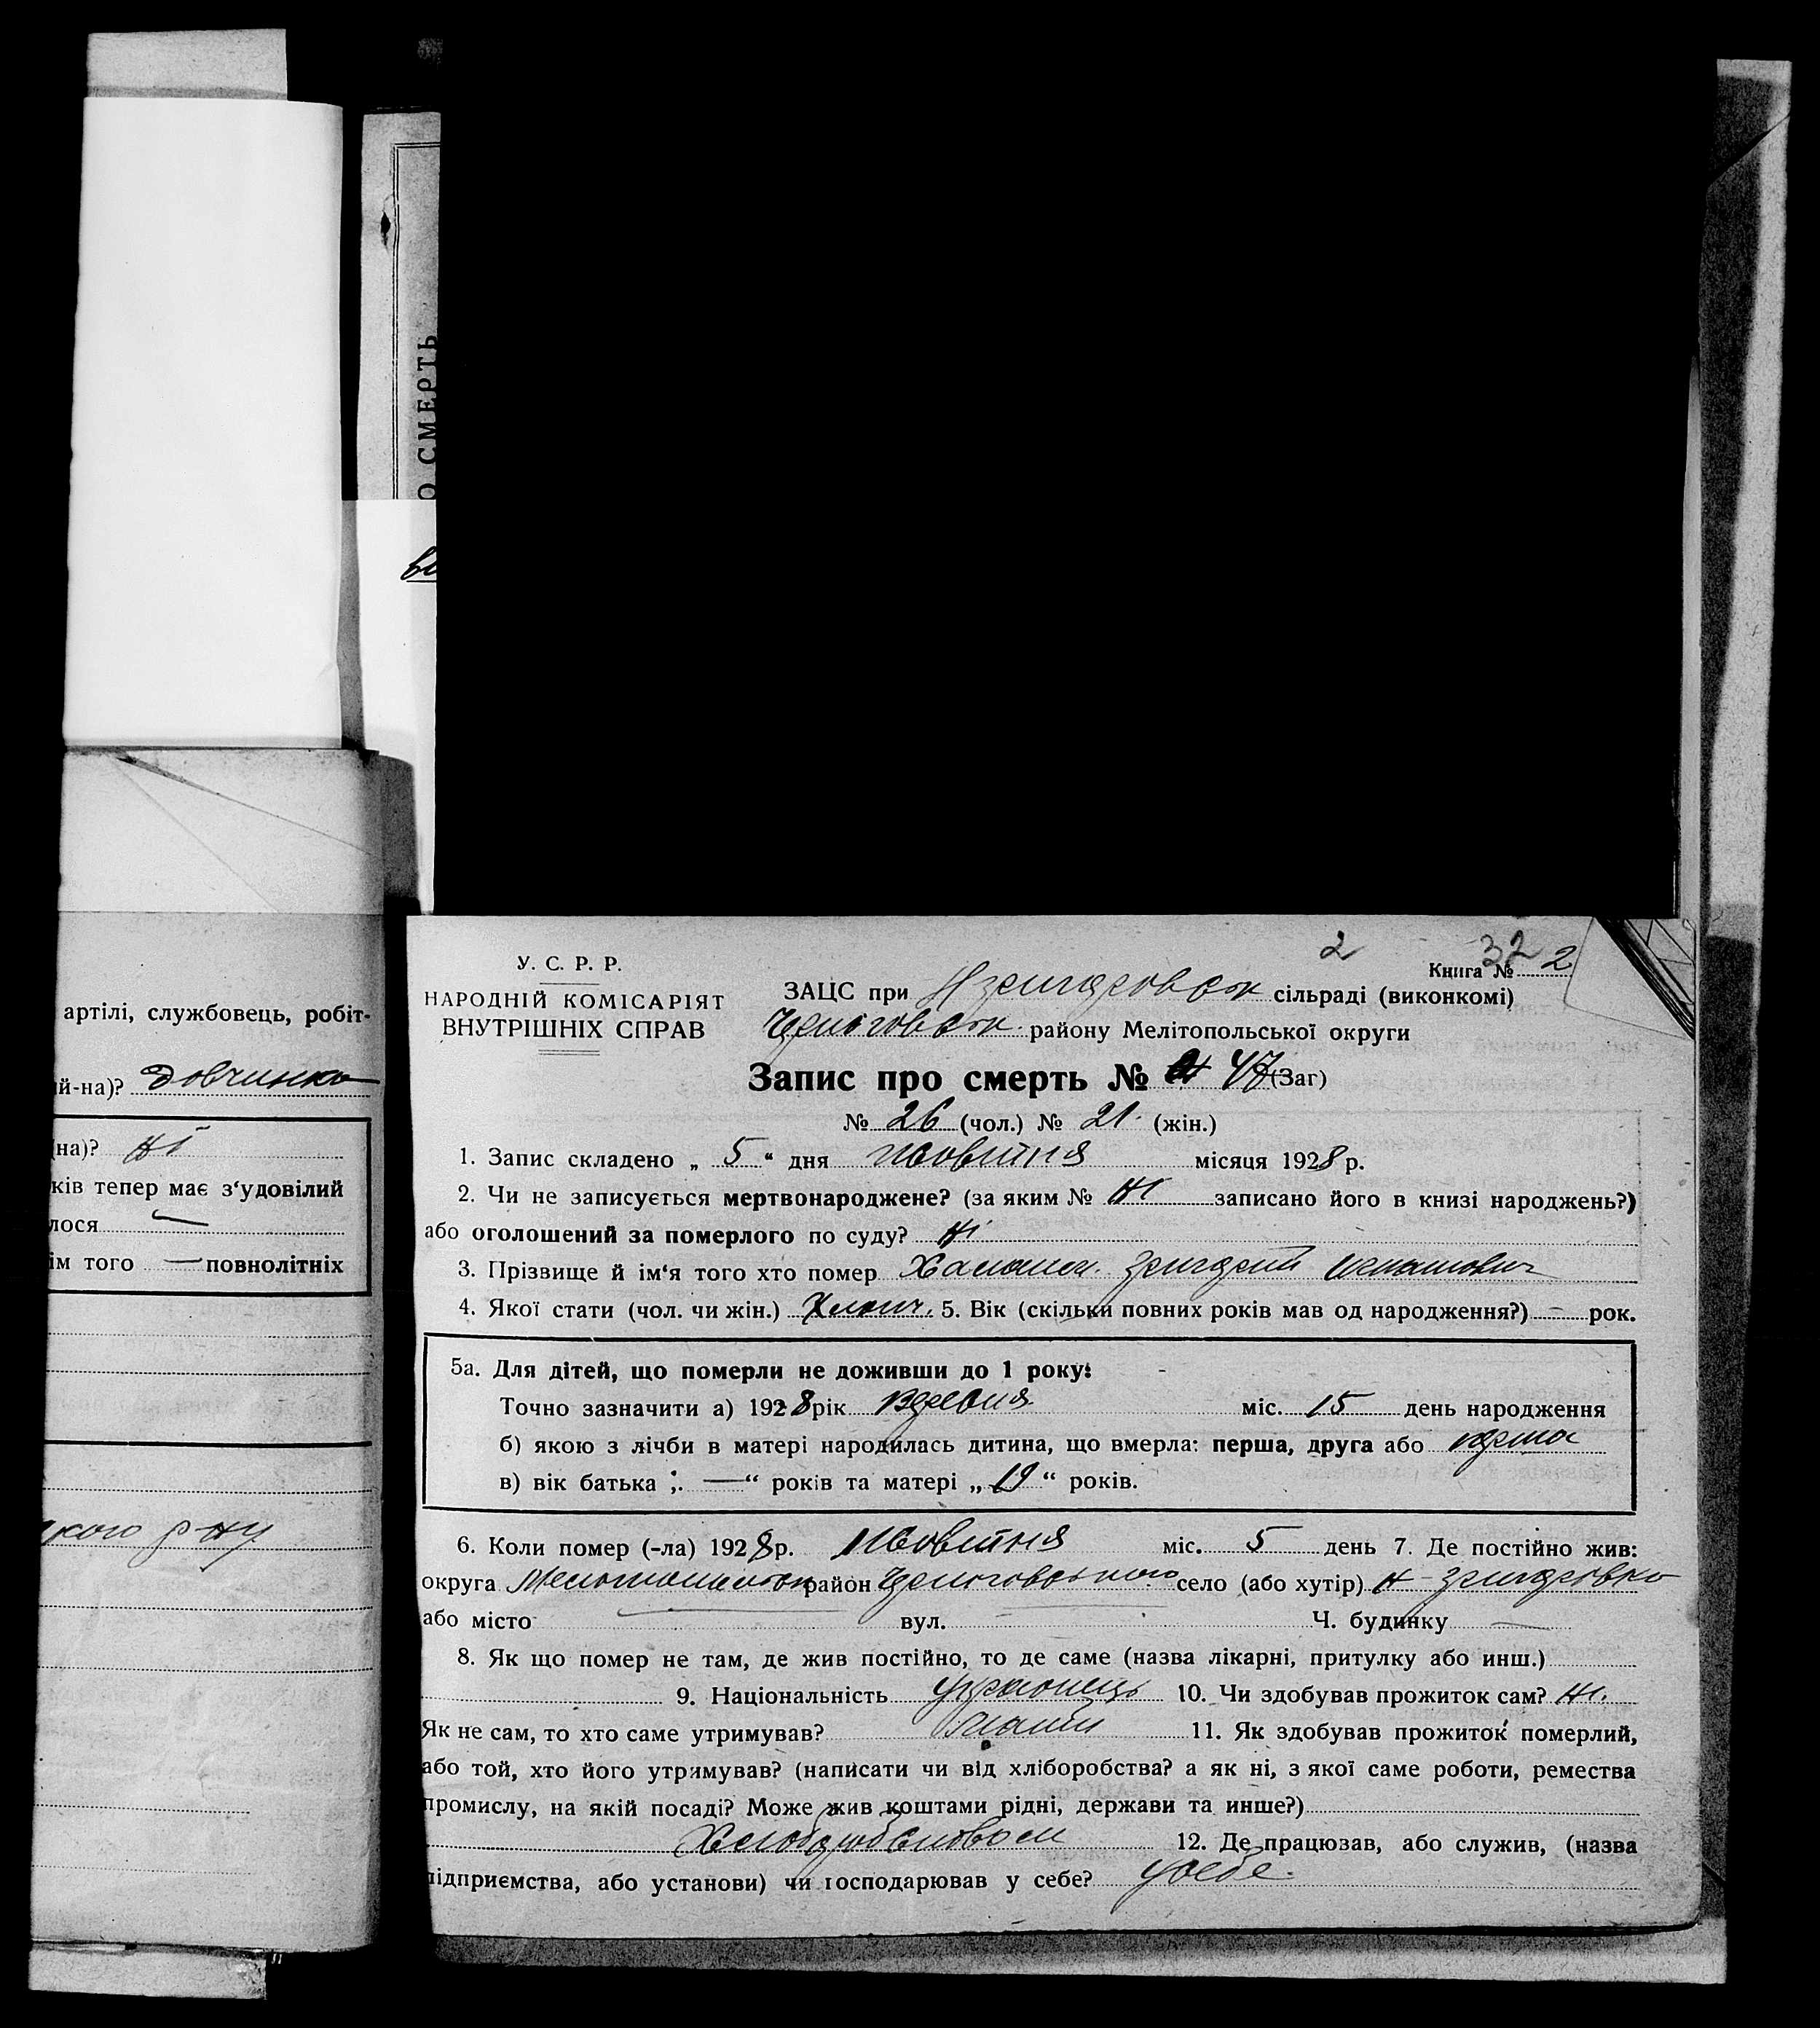 О СМЕРТЬ
артілі, службовець, робіт-
й-на)? Довчинка
на)? Ні
ків тепер має з'удовілий
лося —
ім того — повнолітніх
кого р-ну
2 32
Книга № 2
У. С. Р. Р.
НАРОДНІЙ КОМІСАРІЯТ
ВНУТРІШНІХ СПРАВ
ЗАЦС при сільраді (виконкомі)
району Мелітопольської округи
Запис про смерть № 47 (Заг)
№ 26 (чол.) № 21 (жін.)
1. Запис складено „ 5 “ дня Жовтня місяця 1928 р.
2. Чи не записується мертвонароджене? (за яким № Ні записано його в книзі народжень?)
або оголошений за померлого по суду? Ні
3. Прізвище й ім'я того хто помер
4. Якої стати (чол. чи жін.) Хлопч. 5. Вік (скільки повних років мав од народження?) — рок.
5а. Для дітей, що померли не доживши до 1 року:
Точно зазначити а) 1928 рік міс. 15 день народження
б) якою з лічби в матері народилась дитина, що вмерла: перша, друга або перша
в) вік батька „ — “ років та матері „ 19 “ років.
6. Коли помер (-ла) 1928 р. Жовтня міс. 5 день 7. Де постійно жив:
округа район село (або хутір)
або місто — вул. — Ч. будинку —
8. Як що помер не там, де жив постійно, то де саме (назва лікарні, притулку або инш.)
9. Національність Українець 10. Чи здобував прожиток сам? Ні.
Як не сам, то хто саме утримував? 11. Як здобував прожиток померлий,
або той, хто його утримував? (написати чи від хліборобства? а як ні, з якої саме роботи, ремества
промислу, на якій посаді? Може жив коштами рідні, держави та инше?)
12. Де працював, або служив, (назва
підприємства, або установи) чи господарював у себе? у себе.